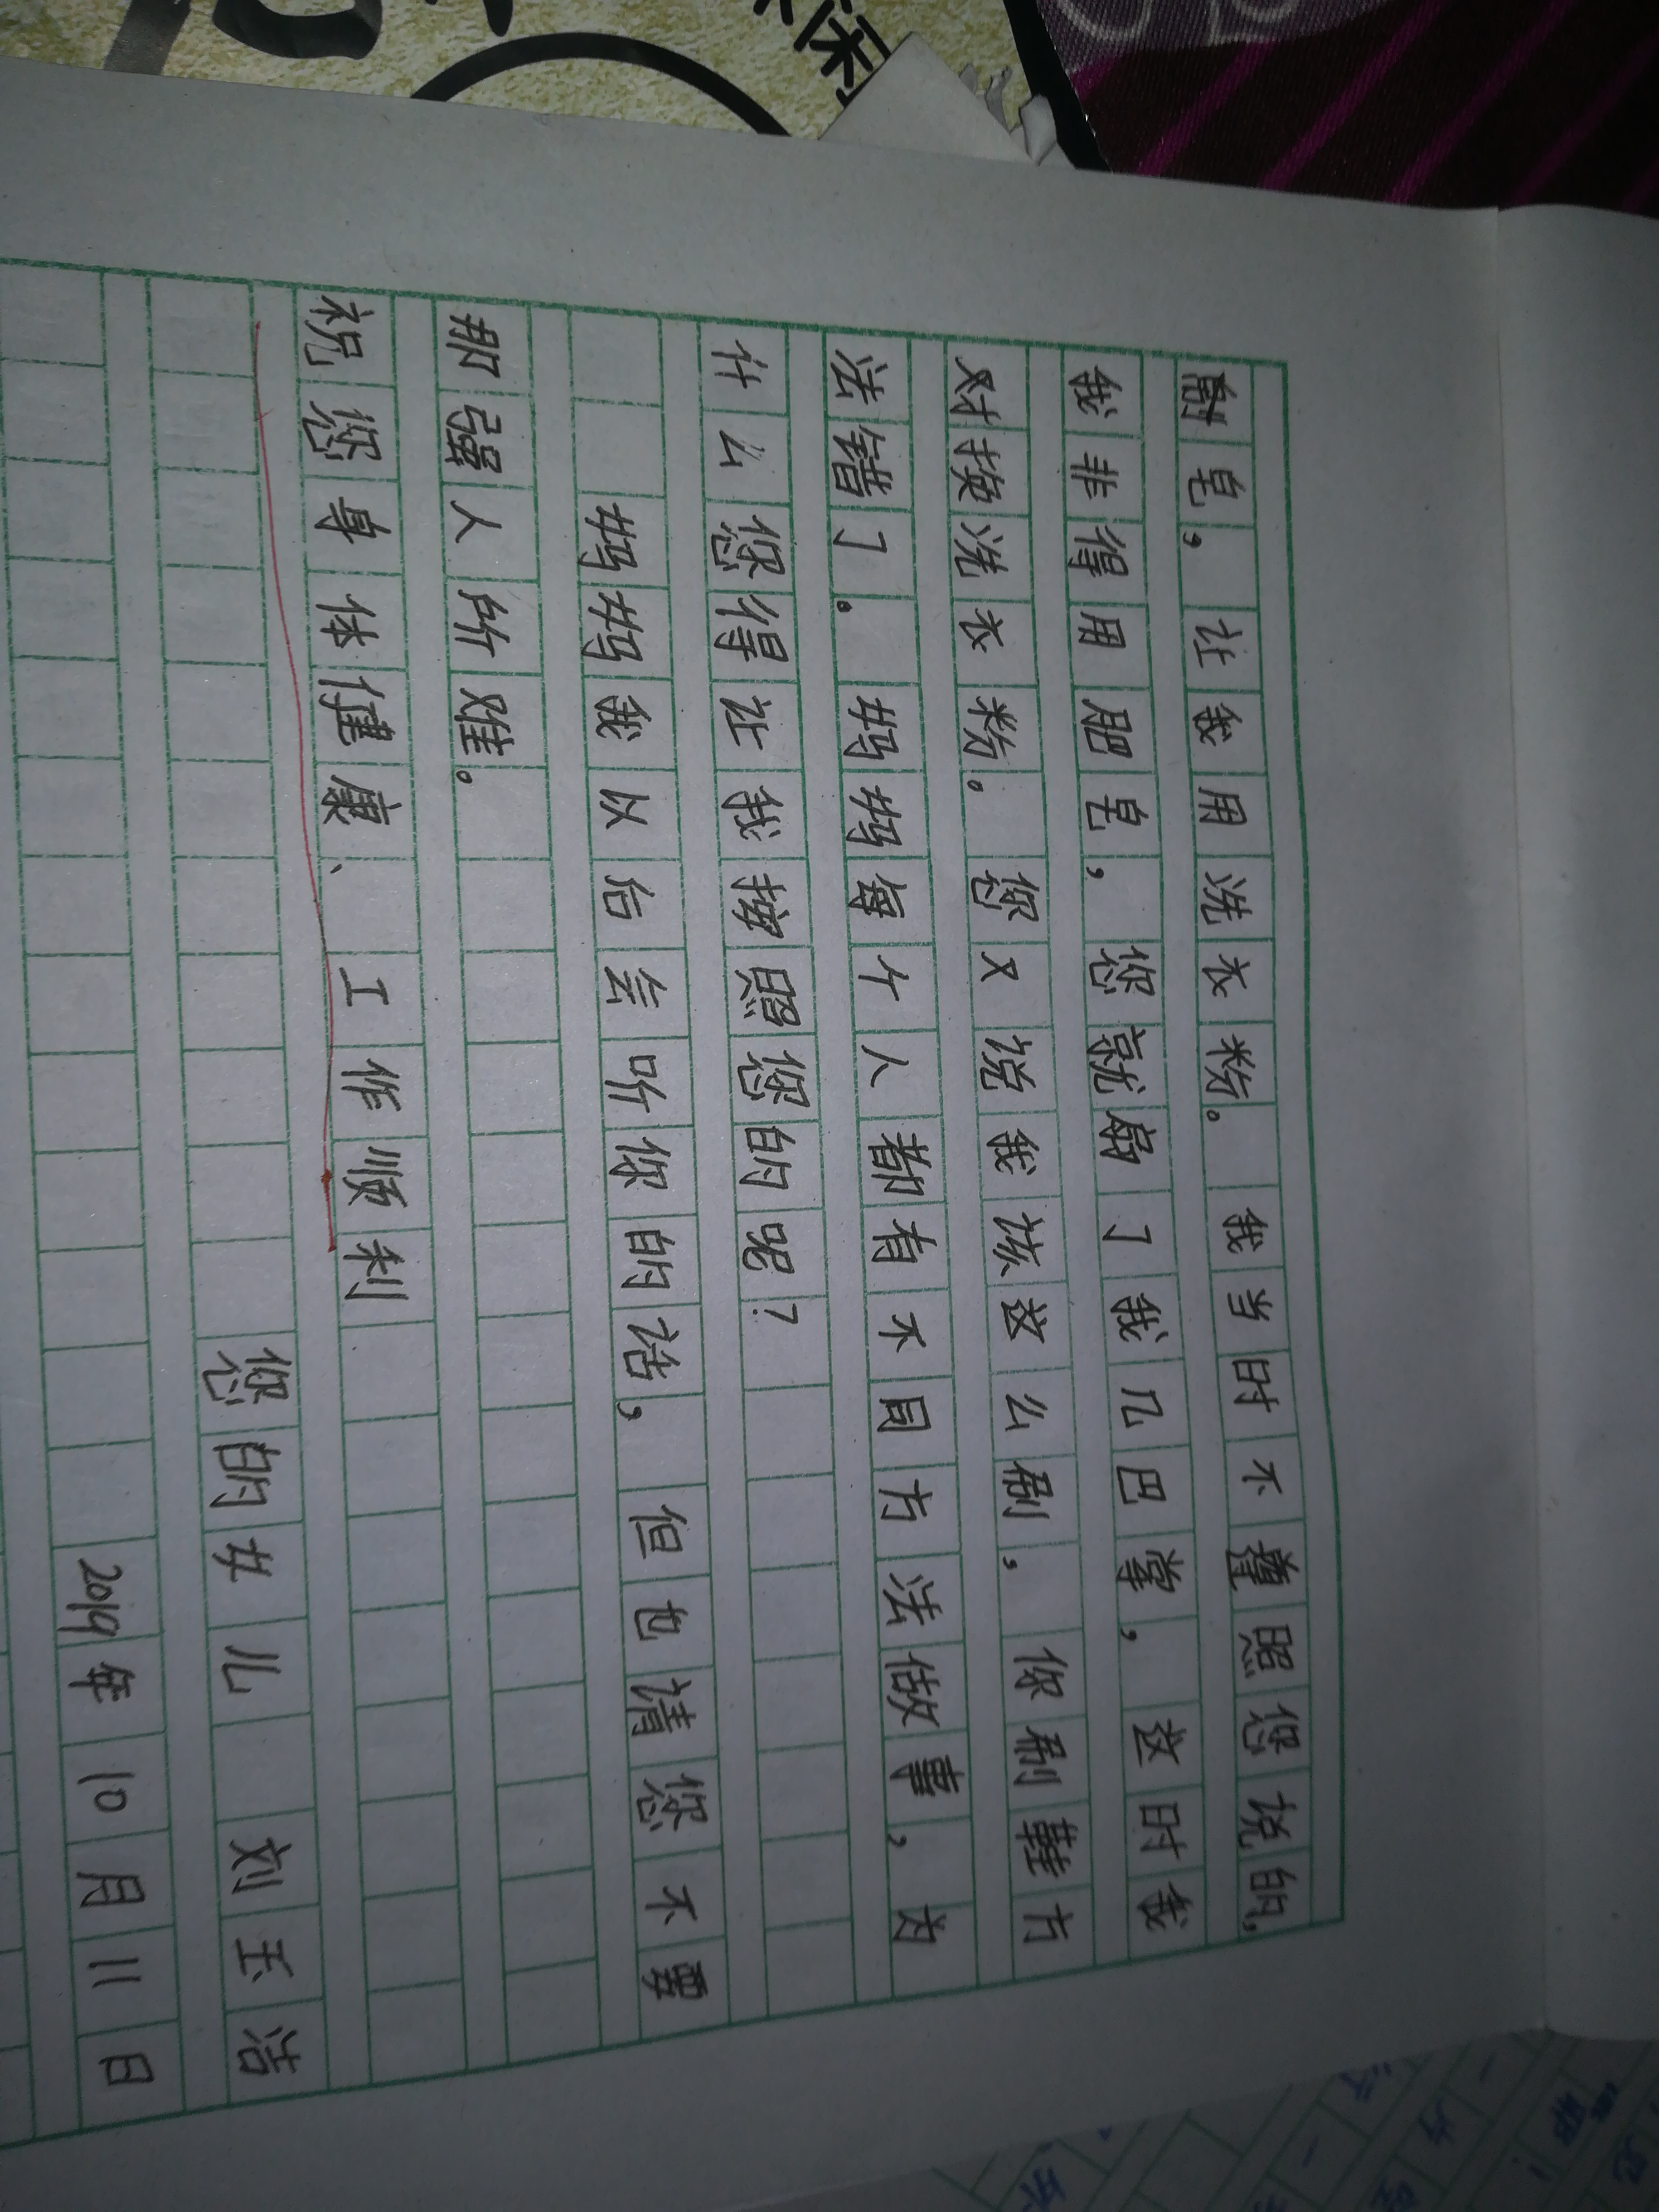 皂，让我用洗衣粉。我当时不遵照您说的，
我非得用肥皂，您就扇了我几巴掌，这时我
对换洗衣粉。您又说我该这么刷，你刷鞋方
法错了。妈妈每个人都有不同方法做事，为
什么您得让我按照您的呢？
妈妈我以后会听你的话，但也请您不要
那强人所难。
祝您身体健康、工作顺利
您的女儿 刘玉洁
2019年10月11日